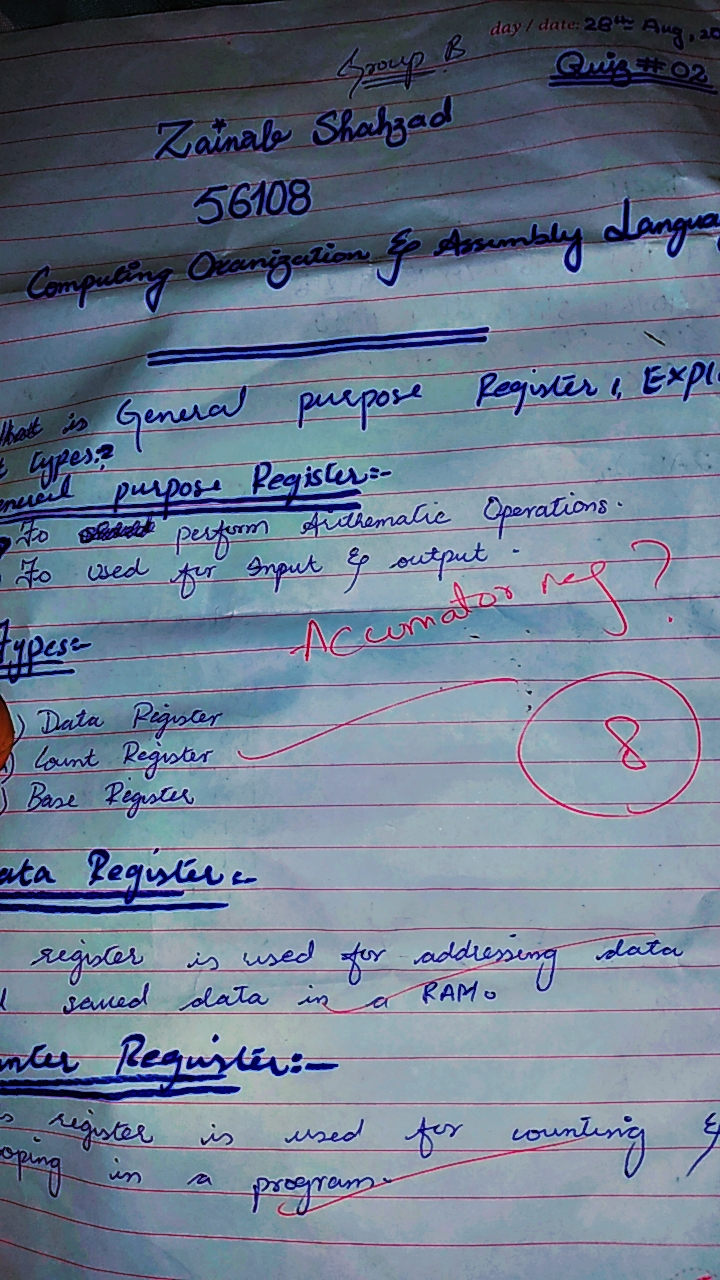 day / date: 28th Aug, 20
Group B
Quiz # 02
Zainab Shahzad
56108
Computing Oranization & Assembly Langua
What is General purpose Register, Expl
t types:?
eneral purpose Register:-
To perform Arithematic Operations.
To used for Input & output.
Accumator reg?
Types:-
) Data Register
) Count Register
8
) Base Register
ata Register:-
register is used for addressing data
saved data in a RAM.
nter Register:-
s register is used for counting &
oping in a program.